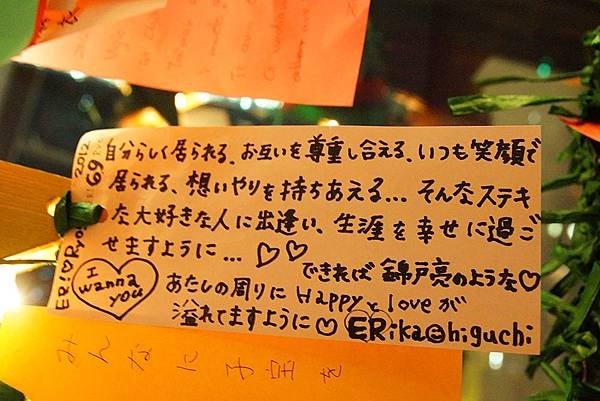 自分らしく居られる、お互いを尊重し合える、いつも笑顔で
居られる、想いやりを持ちあえる... そんなステキ
な大好きな人に出逢い、生涯を幸せに過ご
せますように... ♡♡
できれば 錦戸亮のような♡
あたしの周りに Happyとloveが
溢れてますように♡ ERika☺higuchi
I wanna you
ERi♡Ryo
2012
69
みんなに子宝を